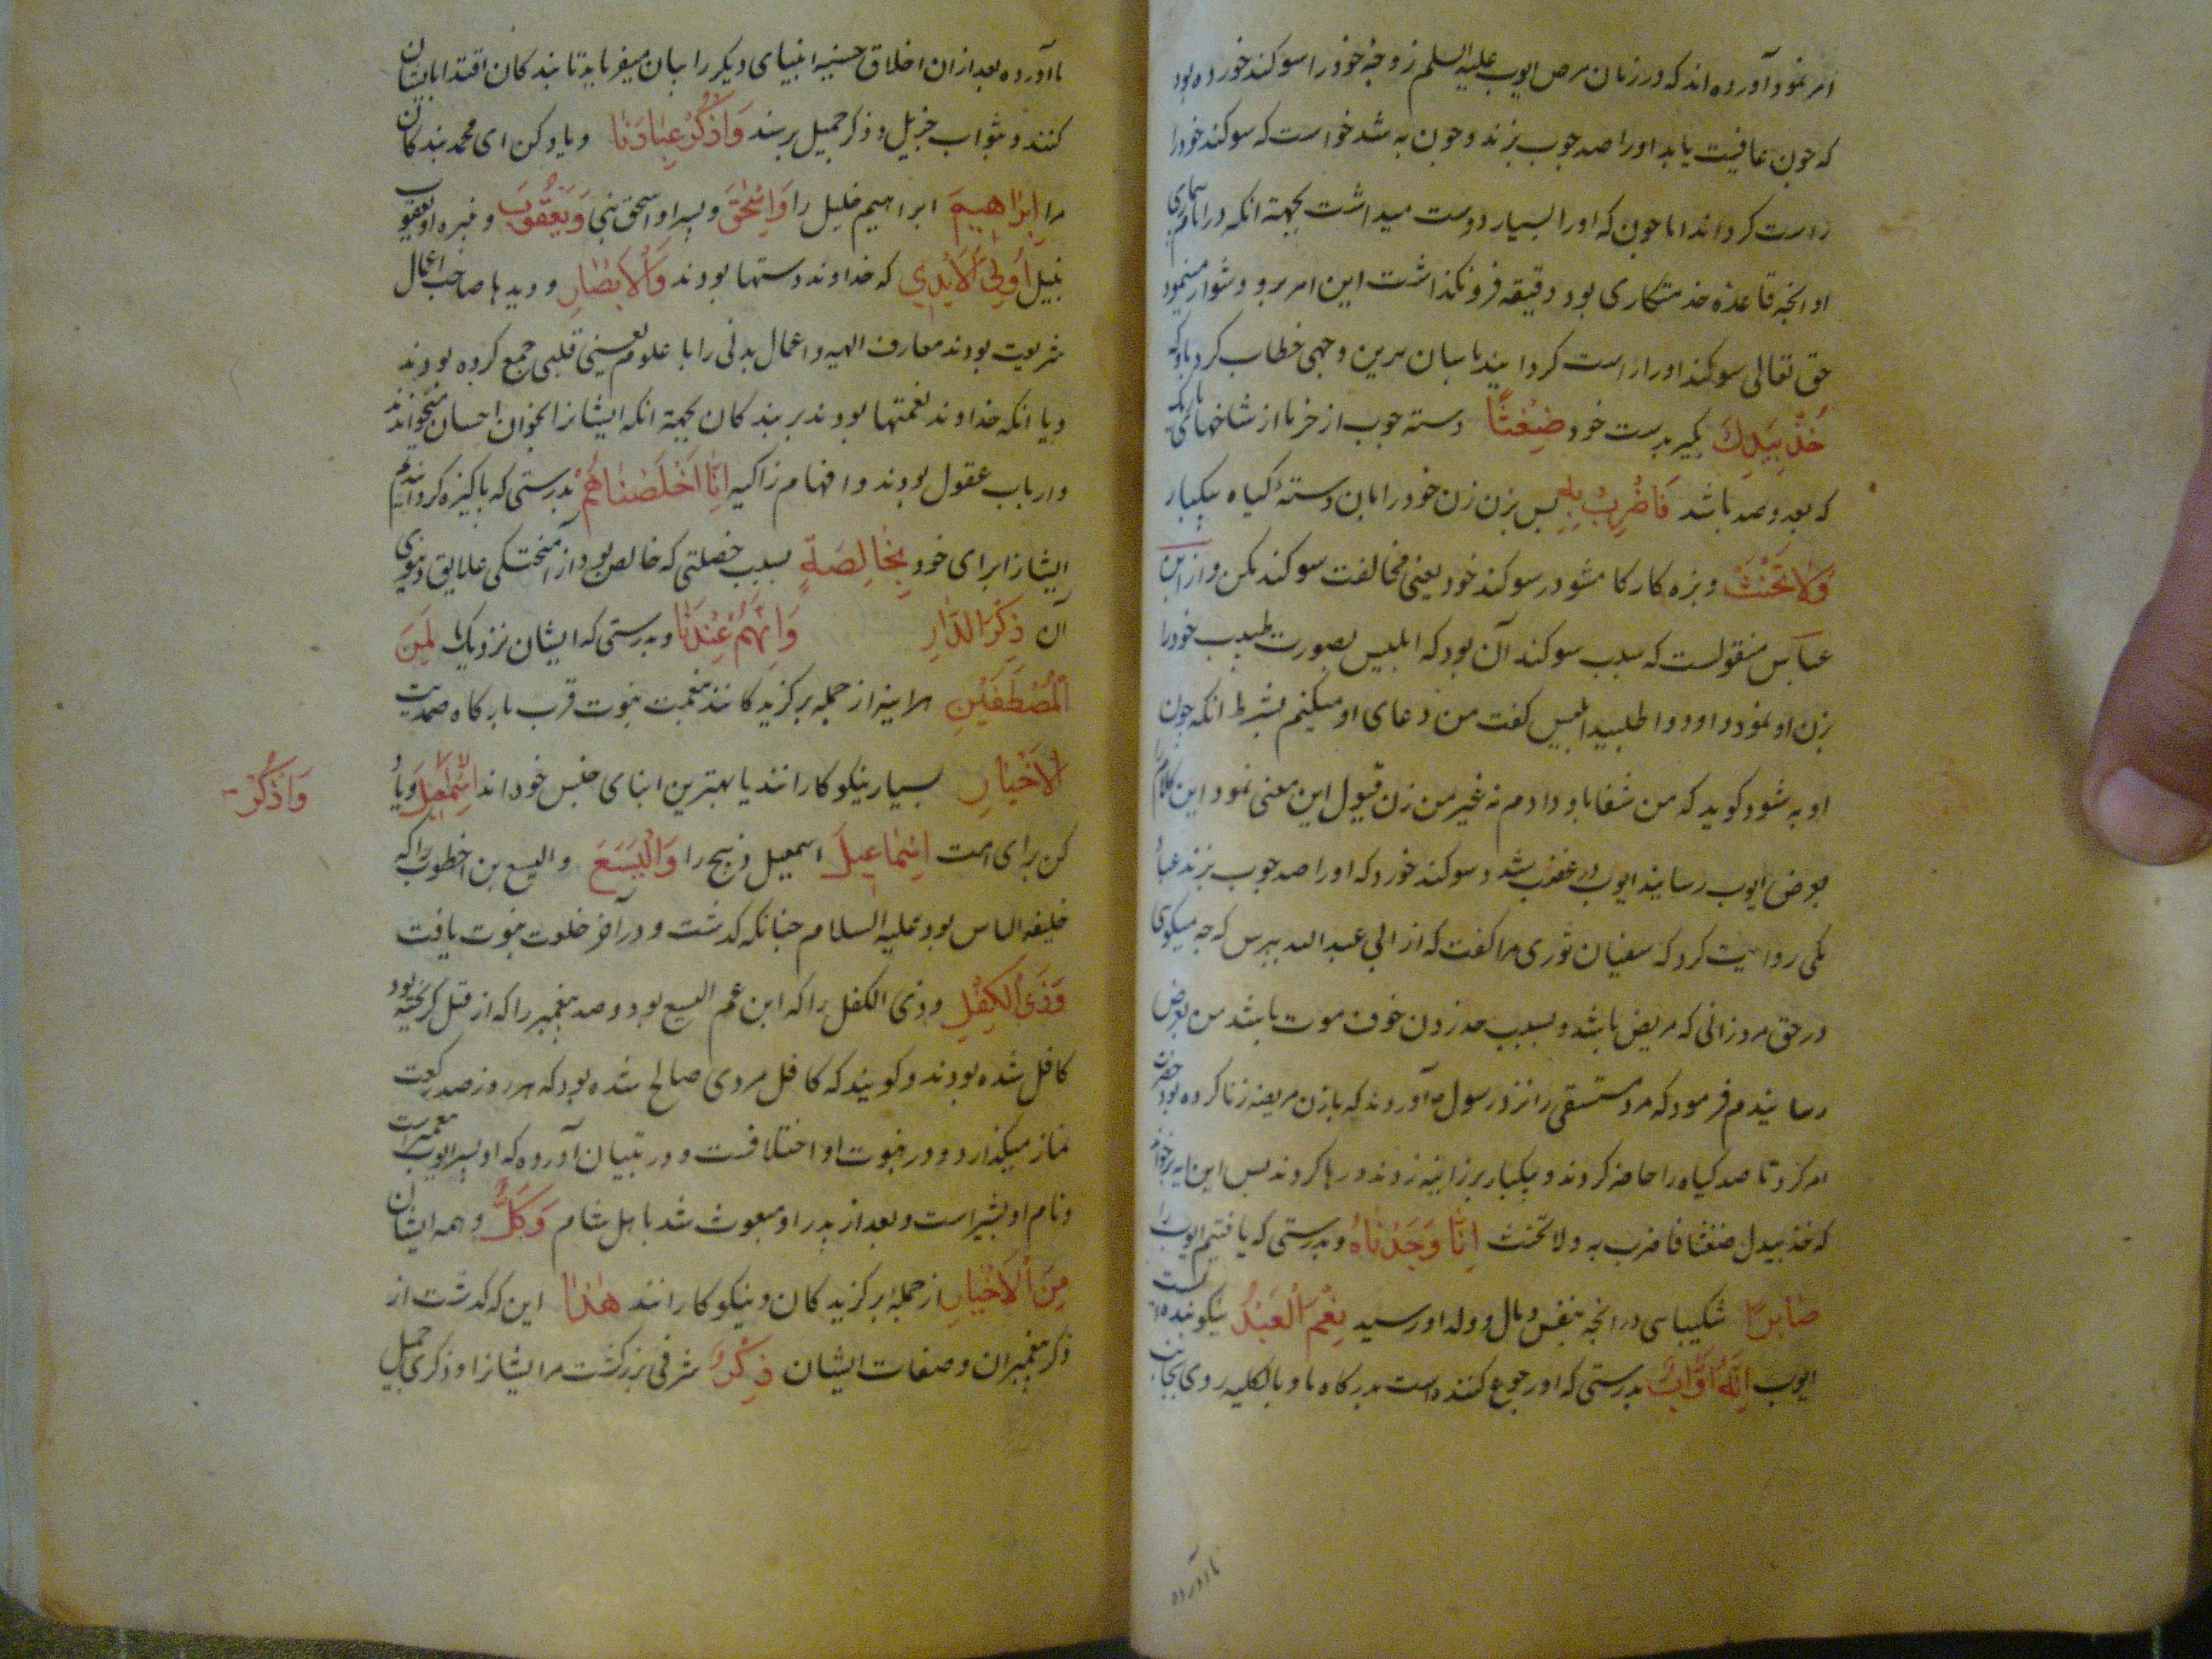 امر نمود آورده اند که در زمان مرض ایوب علیه السلم زوجه خود را سوکند خورده بود
که چون عافیت یابد او را صد چوب بزند و چون به شد خواست که سوکند خود را
راست کرداند اما چون که او را بسیار دوست میداشت بجهة انکه در ایام بیماری
او انچه قاعده خدمتکاری بود دقیقه فرو نکذاشت این امر برو دشوار مینمود
حق تعالی سوکند او را راست کردانید باسان ترین وجهی خطاب کرد باو که
خُذْ بِيَدِكَ بکیر بدست خود ضِغْثًا دسته چوب از خرما از شاخهای باریک
که بعدد صد باشد فَاضْرِبْ بِهِ پس بزن زن خود را بان دستهٔ کیاه یکبار
وَلَا تَحْنَثْ و بزه کار کا مشو در سوکند خود یعنی مخالفت سوکند مکن و از ابن
عباس منقولست که سبب سوکند آن بود که ابلیس بصورت طبیب خود را
بزن او نمود و او دوا طلبید ابلیس کفت من دعای او میکنم بشرط انکه چون
او به شود کوید که من شفا باو دادم نه غیر من زن قبول این معنی نمود این کلام را
بعرض ایوب رسانید ایوب در غضب شد و سوکند خورد که او را صد چوب بزند عباد
مکی روایت کرد که سفیان ثوری مرا کفت که از ابی عبد الله بپرس که چه میکوی
در حق مرد زانی که مریض باشد و بسبب حد زدن خوف موت باشد من بعرض
رسانیدم فرمود که مرد مستسقی را نزد رسول ص آوردند که با زن مریضه زنا کرده بود حضرت
امر کرد تا صد کیاه را حاضر کردند و یکبار بر زانیه زدند و رها کردند پس این ایه بر خواند
که خذ بیدک ضغثا فاضرب به ولا تحنث إِنَّا وَجَدْنَاهُ و بدرستی که یافتیم ایوب را
صَابِرًا شکیبا سی در انچه بنفس و مال و ولد او رسید نِعْمَ الْعَبْدُ نیکو بنده است
ایوب إِنَّهُ أَوَّابٌ بدرستی که او رجوع کننده است بدرکاه ما و بالکلیه روی بجانب
ما آورده
ما آورده بعد از ان اخلاق حسنه انبیای دیکر را بیان میفرماید تا بندکان اقتدا بایشان
کنند و بثواب جزیل و ذکر جمیل برسند وَاذْكُرْ عِبَادَنَا و یاد کن ای محمد بندکان
ما را إِبْرَاهِيمَ ابراهیم خلیل را وَإِسْحَقَ و پسر او اسحق نبی وَيَعْقُوبَ و نبیره او یعقوب
نبیل أُولِي الْأَيْدِي که خداوند دستها بودند وَالْأَبْصَارِ و دیدها صاحب اعمال
شریعت بودند معارف الهیه و اعمال بدنی را با علوم یقینی قلبی جمع کرده بودند
و یا انکه خداوند نعمتها بودند بر بندکان بجهة انکه ایشانرا بخوان احسان میخواندند
و ارباب عقول بودند و افهام زاکیه إِنَّا أَخْلَصْنَاهُمْ بدرستی که پاکیزه کردانیدیم
ایشانرا برای خود بِخَالِصَةٍ بسبب خصلتی که خالص بود از آمیختکی علایق دنیوی
آن ذِكْرَى الدَّارِ وَإِنَّهُمْ عِنْدَنَا و بدرستی که ایشان نزدیک ما لَمِنَ
الْمُصْطَفَيْنَ هراینه از جمله برکزیدکانند بنعمت نبوت قرب بارکاه صمدیت
الْأَخْيَارِ بسیار نیکوکارانند یا بهترین ابنای جنس خود اند إِسْمَعِيلَ و یاد
وَاذْكُرْ
کن برای امت إِسْمَاعِيلَ اسمعیل ذبیح را وَالْيَسَعَ و الیسع بن اخطوب را که
خلیفه الیاس بود علیه السلام چنانکه کدشت و در آخر خلعت نبوت یافت
وَذَا الْكِفْلِ و ذی الکفل را که ابن عم الیسع بود و صد پیغمبر را که از قتل کریخته بودند
کافل شده بودند و کویند که کافل مردی صالح شده بود که هر روز صد رکعت
نماز میکذارد و در نبوت او اختلافست و در تبیان آورده که او پسر ایوب پیغمبر است
و نام او بشیر است و بعد از پدر او مبعوث شد باهل شام وَكُلٌّ و همه ایشان
مِنَ الْأَخْيَارِ از جمله برکزیدکان و نیکوکارانند هَذَا این که کدشت از
ذکر پیغمبران و صفات ایشان ذِكْرٌ شرفی بزرکست مر ایشانرا و ذکری جمیل